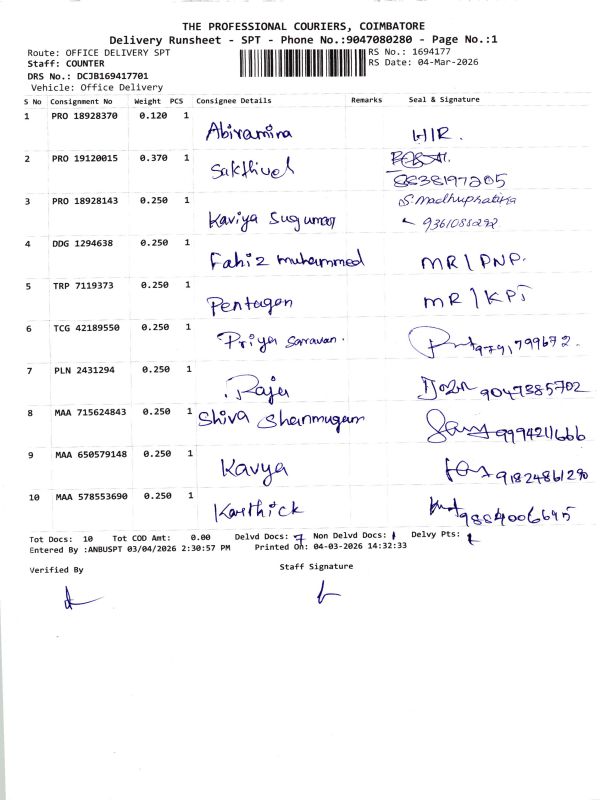 THE PROFESSIONAL COURIERS, COIMBATORE
Delivery Runsheet - SPT - Phone No.:9047080280 - Page No.:1
Route: OFFICE DELIVERY SPT RS No.: 1694177
Staff: COUNTER RS Date: 04-Mar-2026
DRS No.: DCJB169417701
Vehicle: Office Delivery
S No Consignment No Weight PCS Consignee Details Remarks Seal & Signature
1 PRO 18928370 0.120 1 Abiramina HIR.
2 PRO 19120015 0.370 1 Sakthivel
8838197205
3 PRO 18928143 0.250 1 Kaviya Sugumar S. Madhuphratika
9361088292
4 DDG 1294638 0.250 1 Fahiz muhammed MR | PNP.
5 TRP 7119373 0.250 1 Pentagon MR | KPT
6 TCG 42189550 0.250 1 Priya Sarravan. 9791799672.
7 PLN 2431294 0.250 1 Raja 9047385702
8 MAA 715624843 0.250 1 Shiva Shanmugam 9994211666
9 MAA 650579148 0.250 1 Kavya 9182486120
10 MAA 578553690 0.250 1 Karthick 9884006645
Tot Docs: 10 Tot COD Amt: 0.00 Delvd Docs: 7 Non Delvd Docs: Delvy Pts:
Entered By :ANBUSPT 03/04/2026 2:30:57 PM Printed On: 04-03-2026 14:32:33
Verified By Staff Signature